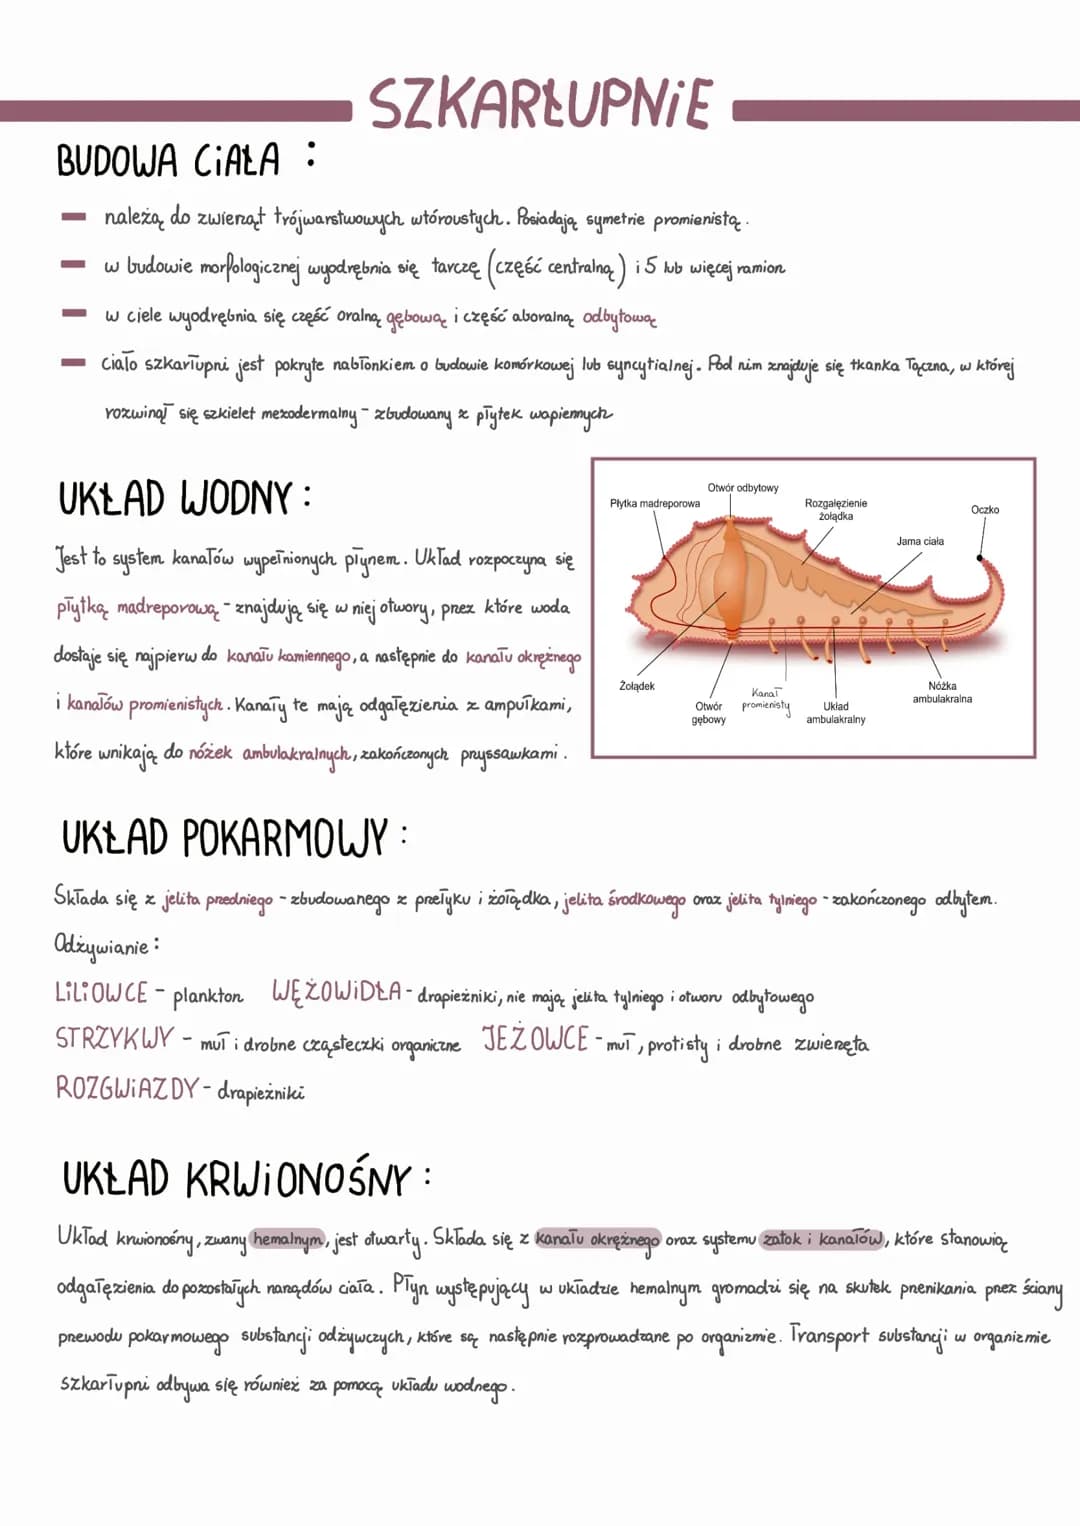 SZKARŁUPNIE
BUDOWA CIAŁA :
- należą do zwierząt trójwarstwowych wtóroustych. Posiadają symetrie promienistą.
- w budowie morfologicznej wyodrębnia się tarczę (część centralną) i 5 lub więcej ramion
- w ciele wyodrębnia się część oralną gębową i część aboralną odbytową
- ciało szkarłupni jest pokryte nabłonkiem o budowie komórkowej lub syncytialnej. Pod nim znajduje się tkanka łączna, w której
rozwinął się szkielet mezodermalny - zbudowany z płytek wapiennych
UKŁAD WODNY :
Jest to system kanałów wypełnionych płynem. Układ rozpoczyna się
płytką madreporową - znajdują się w niej otwory, przez które woda
dostaje się najpierw do kanału kamiennego, a następnie do kanału okrężnego
i kanałów promienistych. Kanały te mają odgałęzienia z ampułkami,
które wnikają do nóżek ambulakralnych, zakończonych pryssawkami.
Otwór odbytowy
Płytka madreporowa
Rozgałęzienie
żołądka
Oczko
Jama ciała
Żołądek
Otwór
gębowy
Kanał
promienisty
Układ
ambulakralny
Nóżka
ambulakralna
UKŁAD POKARMOWY :
Składa się z jelita przedniego - zbudowanego z przełyku i żołądka, jelita środkowego oraz jelita tylniego - zakończonego odbytem.
Odżywianie :
LILIOWCE - plankton WĘŻOWIDŁA - drapieżniki, nie mają jelita tylniego i otworu odbytowego
STRZYKWY - muł i drobne cząsteczki organiczne JEŻOWCE - muł, protisty i drobne zwierzęta
ROZGWIAZDY - drapieżniki
UKŁAD KRWIONOŚNY :
Układ krwionośny, zwany hemalnym, jest otwarty. Składa się z kanału okrężnego oraz systemu zatok i kanałów, które stanowią
odgałęzienia do pozostałych narządów ciała. Płyn występujący w układzie hemalnym gromadzi się na skutek przenikania przez ściany
przewodu pokarmowego substancji odżywczych, które są następnie rozprowadzane po organizmie. Transport substancji w organizmie
szkarłupni odbywa się również za pomocą układu wodnego.